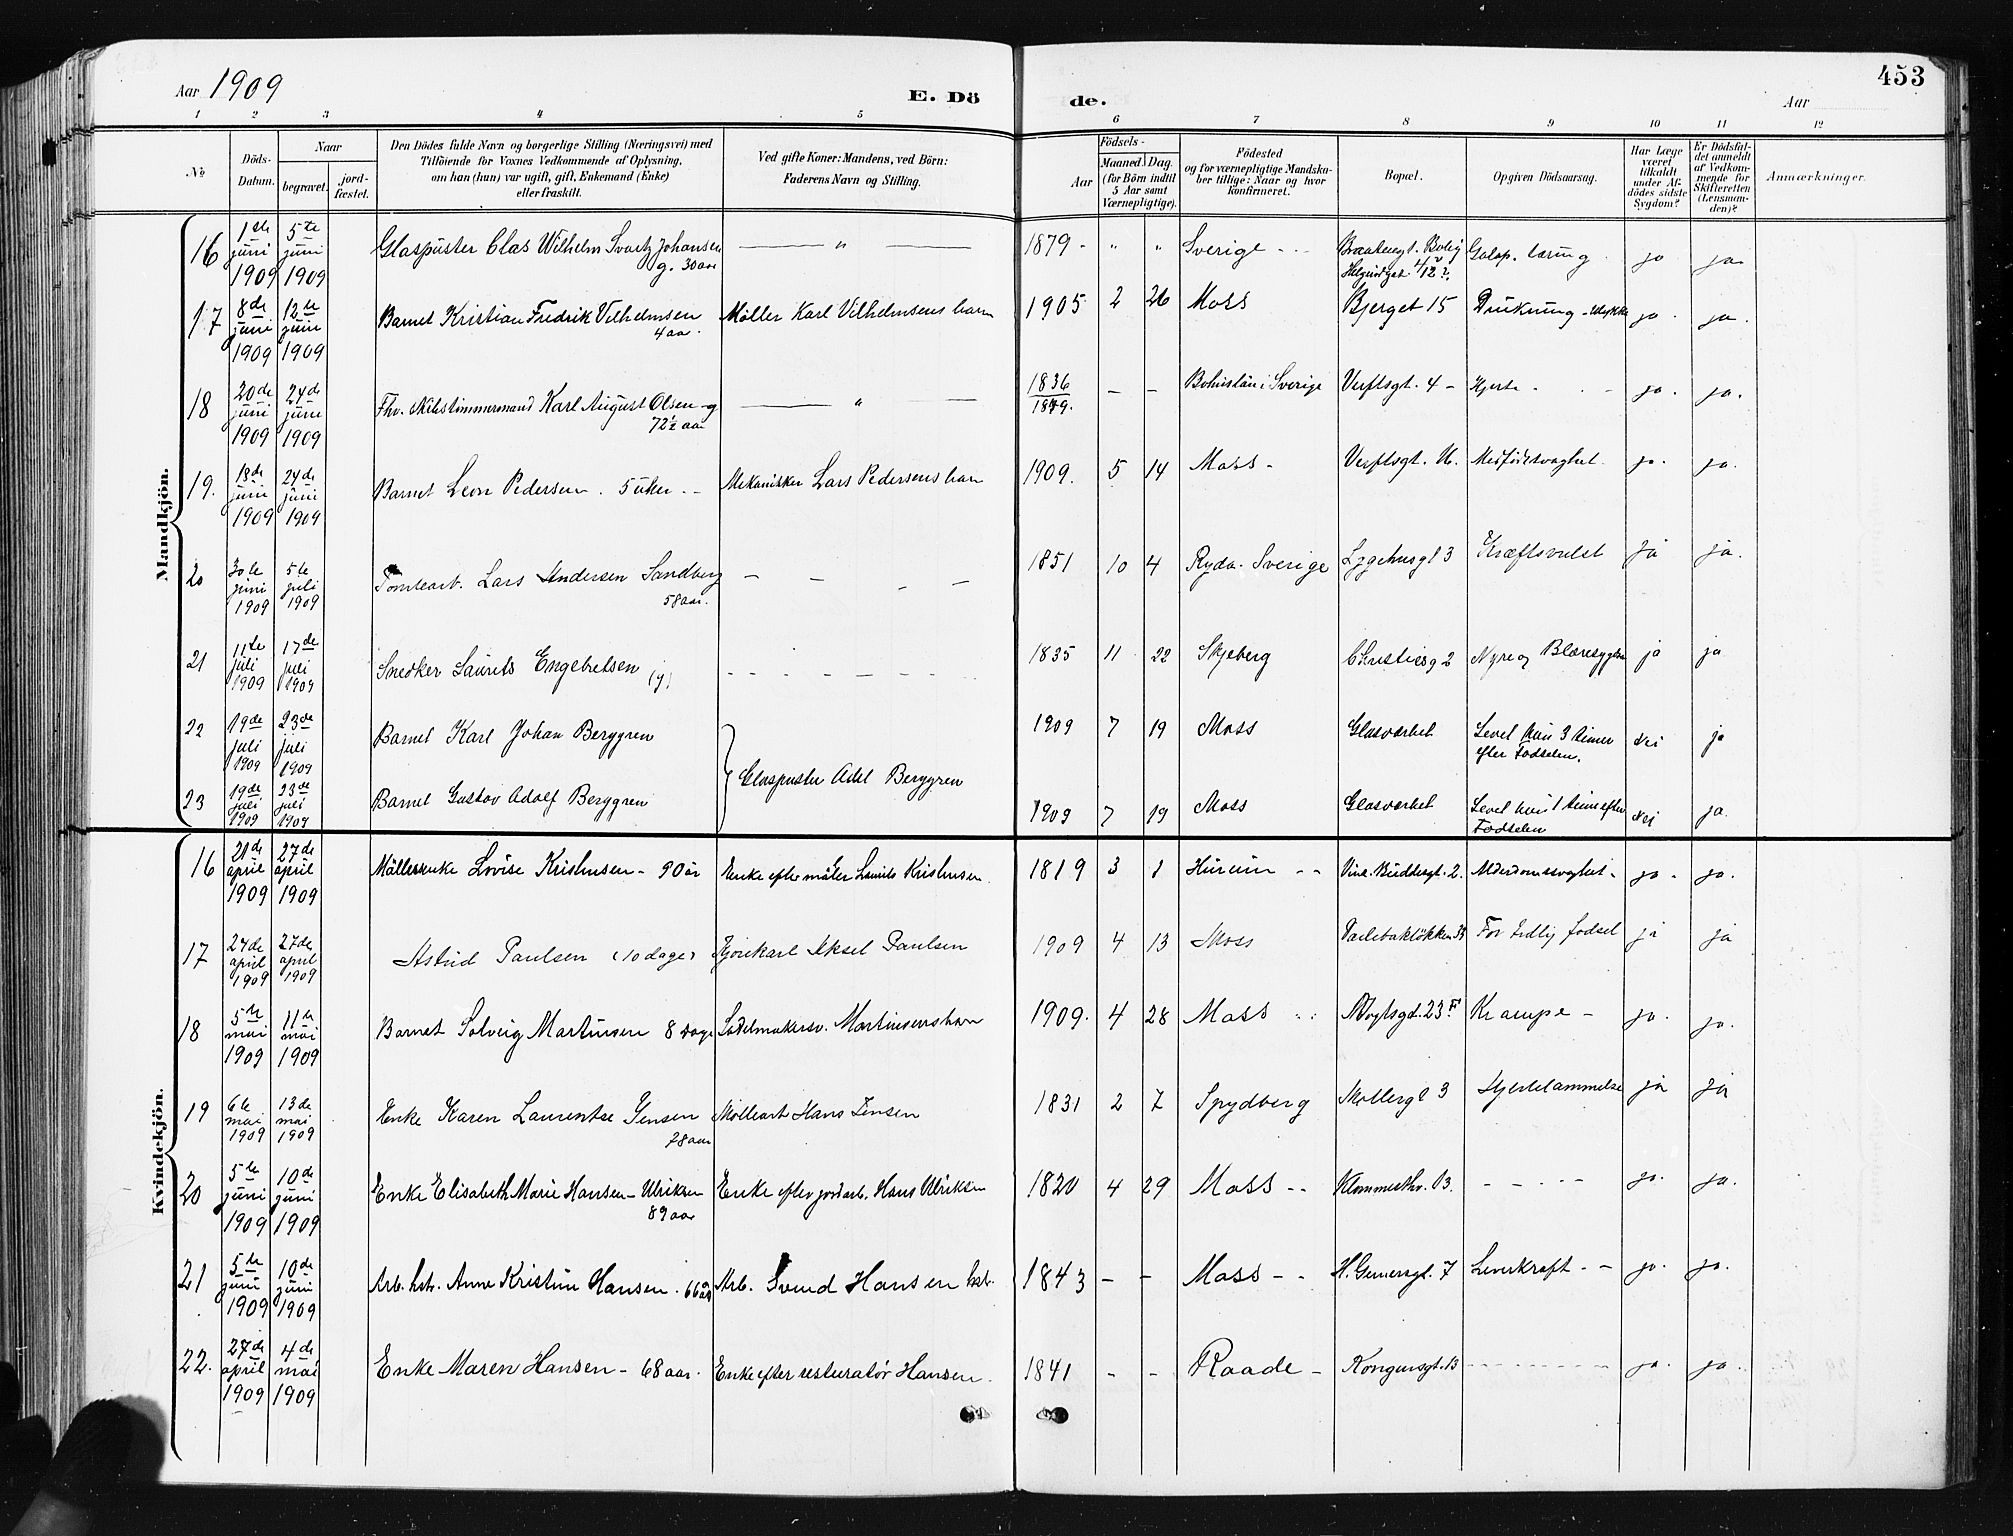 Aar 1909
E. Dö de.
453
Aar
1 2 3 4 5 6 7 8 9 10 11 12
No
Döds-Datum.
Naar
begravet.
jord-fæstet.
Den Dödes fulde Navn og borgerlige Stilling (Næringsvei) med
Tilföiende for Voxnes Vedkommende af Oplysning,
om han (hun) var ugift, gift, Enkemand (Enke)
eller fraskilt.
Ved gifte Koner: Mandens, ved Börn:
Faderens Navn og Stilling.
Födsels-
Aar
Maaned. Dag.
(for Börn indtil
5 Aar samt
Værnepligtige).
Födested
og for værnepligtige Mandska-
ber tillige: Naar og hvor
konfirmeret.
Bopæl.
Opgiven Dödsaarsag.
Har Læge
været
tilkaldt
under Af-
dödes sidste
Sygdom?
Er Dödsfal-
det anmeldt
af Vedkom-
mende for
Skifteretten
(Lensman-
den)?
Anmærkninger.
Mandkjön.
16 1ste juni 1909 5te juni 1909 Glaspuster Clas Wilhelm Svartz Johansen g. 30 aar — " — 1879 - " " Sverige -- 
17 8de juni 1909 12te juni 1909 Barnet Kristian Fredrik Vilhelmsen 4 aar. Möller Karl Vilhelmsens barn 1905 2 26 Moss Bjerget 15 Drukning - ja. ja.
18 20de juni 1909 24de juni 1909 Fhv. Karl August Olsen - g 72½ aar — " — 1836 — — i Sverige Verftsgt. 4 - Hjerte - - ja. ja.
19. 18de juni 1909 24de juni 1909 Barnet Leon Pedersen. 5 uker -- Mekaniker Lars Pedersens barn 1909. 5 14 Moss - Verftsgt. ja. ja.
20 30te juni 1909 5te juli 1909 Tomtearb. Lars Andersen Sandberg 58 aar. — — - — 1851 10 4 Ryda. Sverige Lyngehusgt 3 Kræftsvulst ja ja.
21 11te juli 1909 17de juli 1909 Snedker Laurits Engebretsen (g) - - - - 1835 11 22 Skjeberg Christiesg 2 Nyre og Blæresygdom ja ja
22 19de juli 1909 23de juli 1909 Barnet Karl Johan Berggren 1909 7 19 Moss Glasværket Levet kun 3 timer efter Fødselen. Nei ja
Glaspuster Berggren
23 19de juli 1909 23de juli 1909 Barnet Gustav Adolf Berggren 1909 7 19 Moss Glasverket Levet kun 1 time efter Fødselen Nei ja.
Kvindekjön.
16 21de april 1909 27de april 1909 Møllerenke Lovise Kristensen - 90 år Enke efter møller Laurits Kristensen. 1819 3 1 Hurum -- Vinc. Buddesgt. 2. Alderdomssvaghet - ja. ja.
17 24de april 1909 27de april 1909 Astrid Paulsen (10 dage) Kjørekarl Aksel Paulsen 1909 4 13 Moss For tidlig fødsel ja ja
18 5te mai 1909 11te mai 1909 Barnet Solveig Martinsen 8 dage Sadelmakersv. Martinsens barn 1909. 4 28 Moss Vogtsgd. 23 F Krampe - ja. ja.
19 6te mai 1909 13de mai 1909 Enke Karen Laurentse Jensen 78 aar Møllearb Hans Jensen 1831 2 7 Spydberg Møllergt 3 Hjertelammelse ja ja
20 5te juni 1909 10de juni 1909 Enke Elisabeth Marie Hansen - Ulriksen 89 aar Enke efter jordarb. Hans Ulriksen 1820 4 29 Moss -- - - - - - ja. ja.
21 5te juni 1909 10de juni 1909 Arb. hstr. Anne Kristine Hansen. 66 år Arb. Svend Hansen hst. 1843 — — Moss - - H. Gernersgt. 7 Leverkræft - - ja. ja.
22. 27de april 1909 4de mai 1909 Enke Maren Hansen - 68 aar. Enke efter resturatør Hansen. 1841 - - Raade - Kongensgt. 13 - - - - - ja. ja.